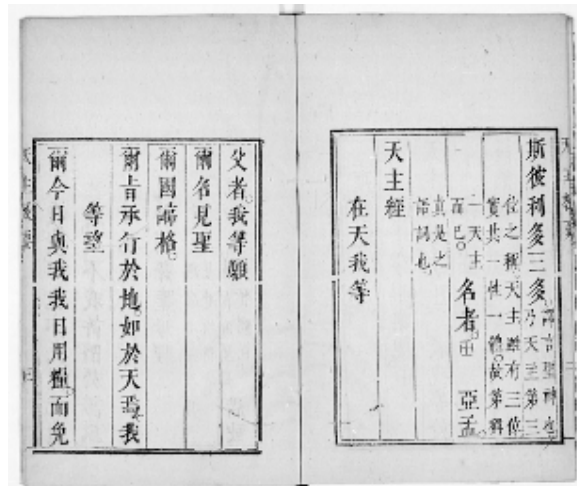 斯彼利多三多
譯言聖神也
乃天主第三
位之稱天主雖有三位
實共一性一體。故第
一天主
而已。
名者。亞孟
真是之
語詞也
天主經
在天我等
父者。我等願
爾名見聖
爾國臨格。
爾旨承行於地。如於天焉。我
等望
爾今日與我我日用糧。而免